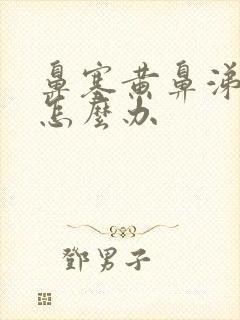 鼻塞黄鼻涕
怎麼办
鄧男子